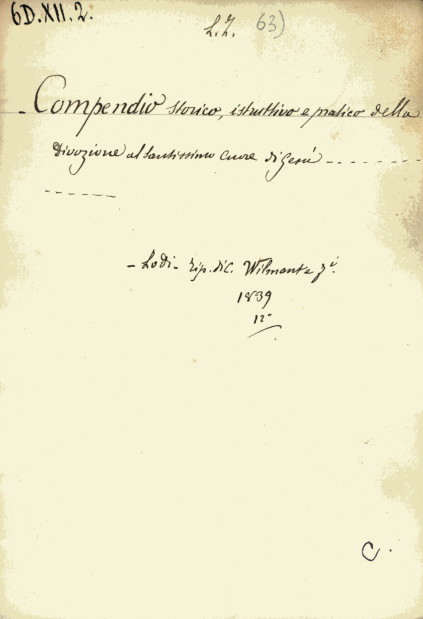 6D.XII.2.
63)
Compendio storico, istruttivo e pratico della
Divozione al Santissimo Cuore di Gesù
- Lodi - Tip. di C. Wilmant e
1839
12°
C.